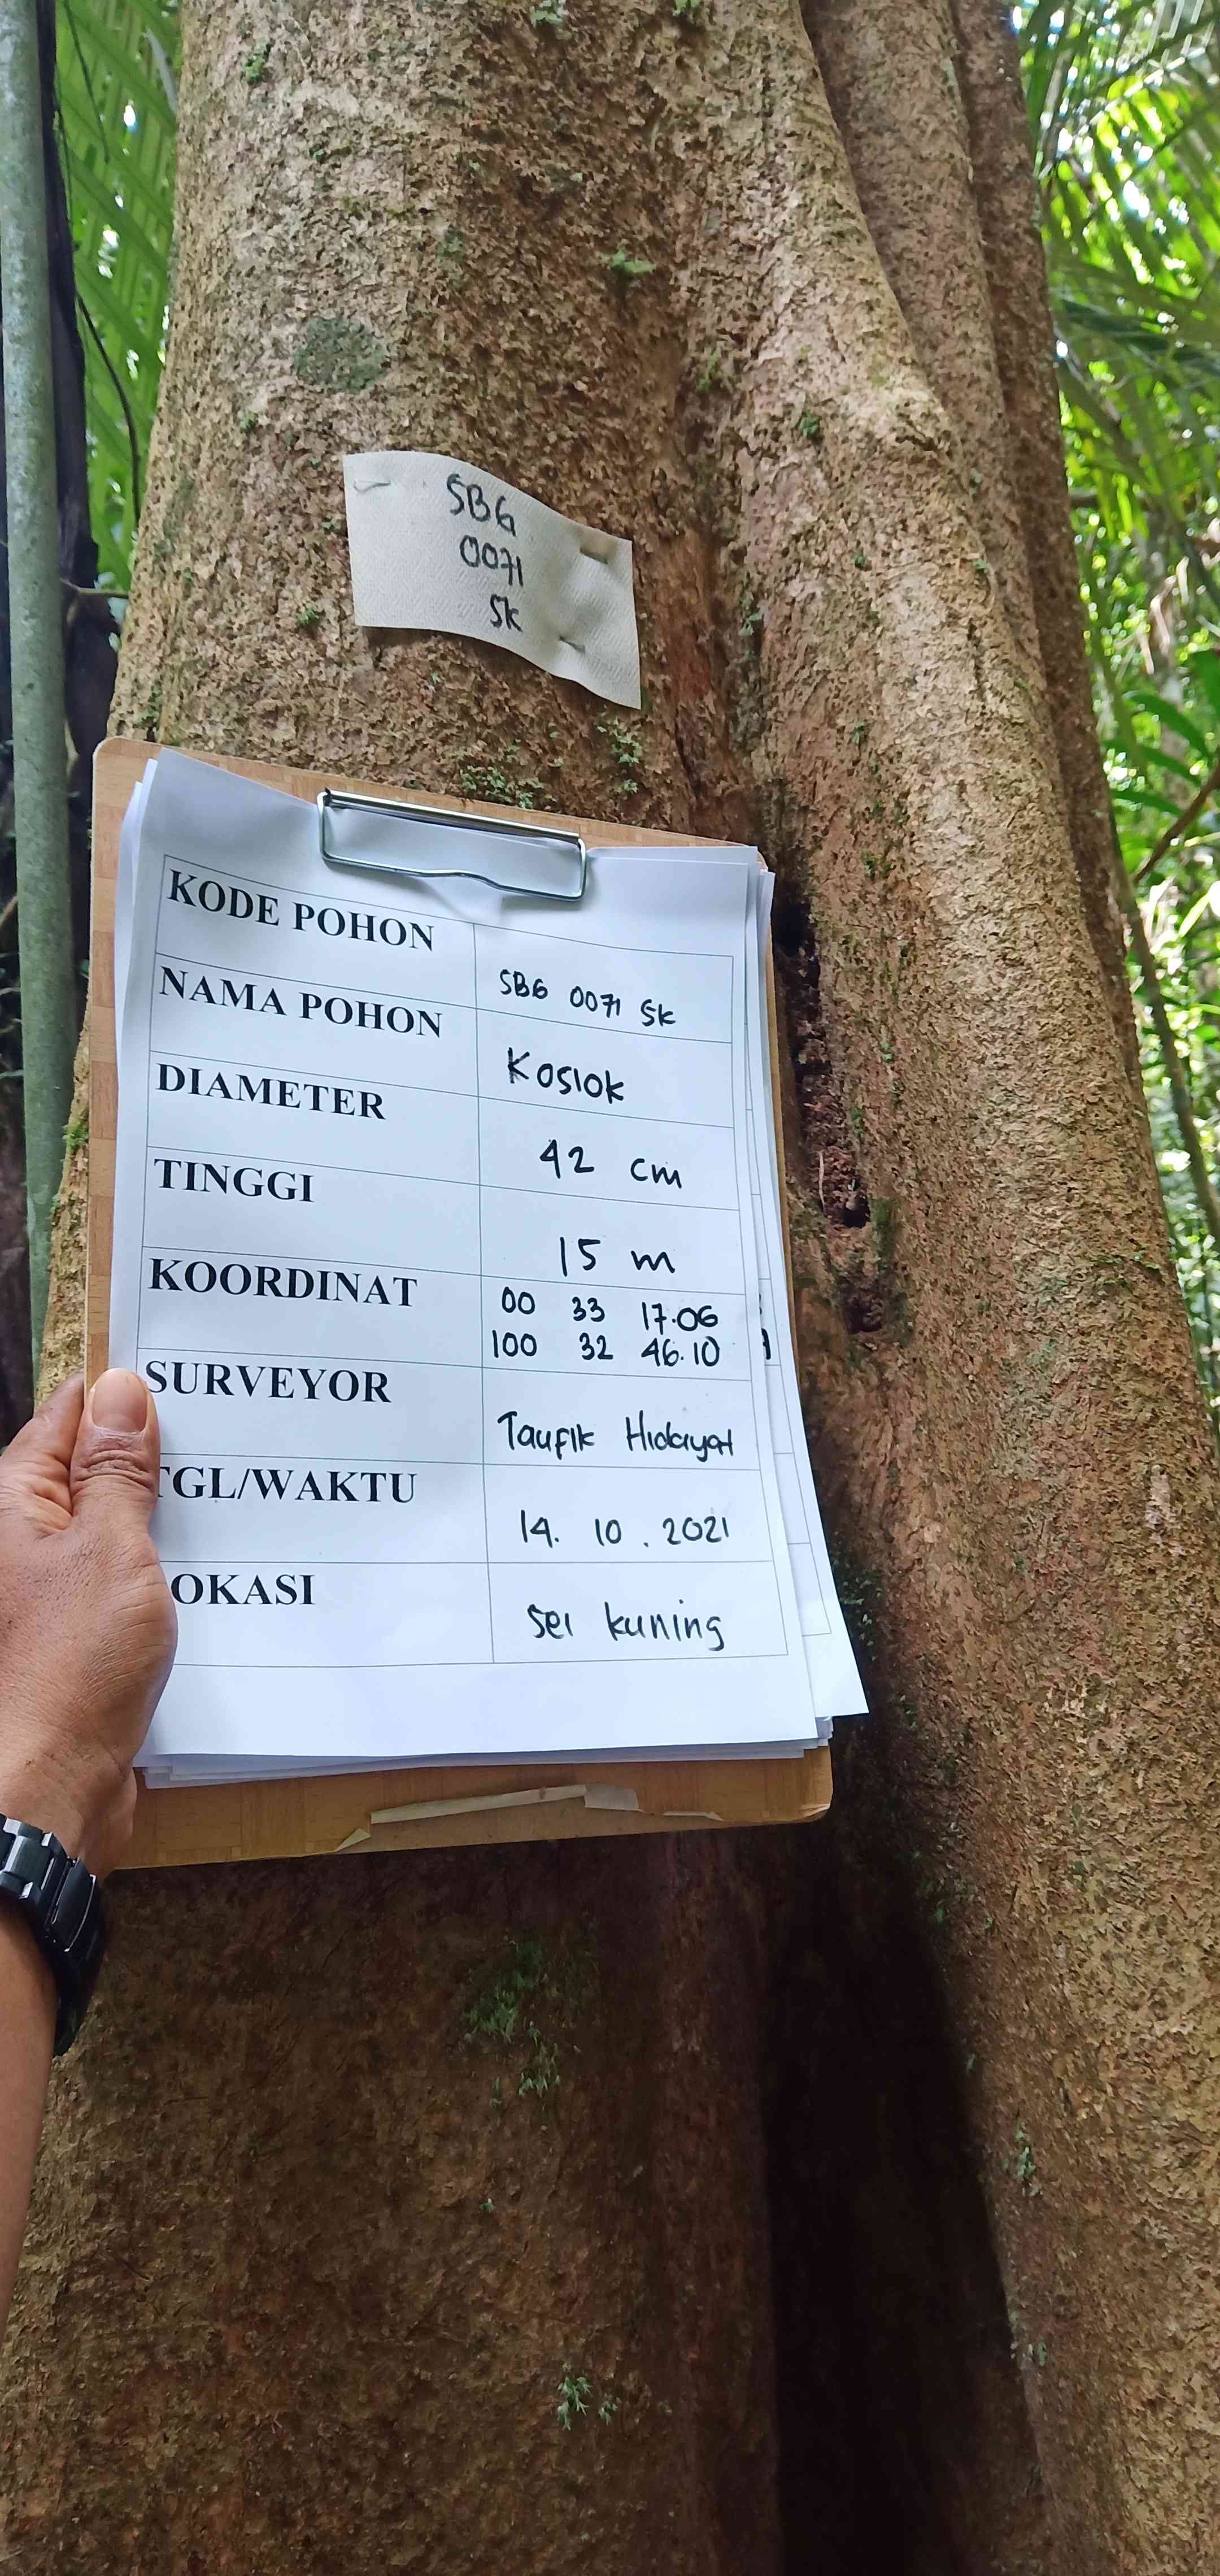 SBG
0071
SK
KODE POHON
SBG 0071 SK
NAMA POHON
Kosiok
DIAMETER
42 cm
TINGGI
15 m
KOORDINAT
00 33 17.06
100 32 46.10
SURVEYOR
Taufik Hidayat
TGL/WAKTU
14. 10. 2021
OKASI
Sei kuning